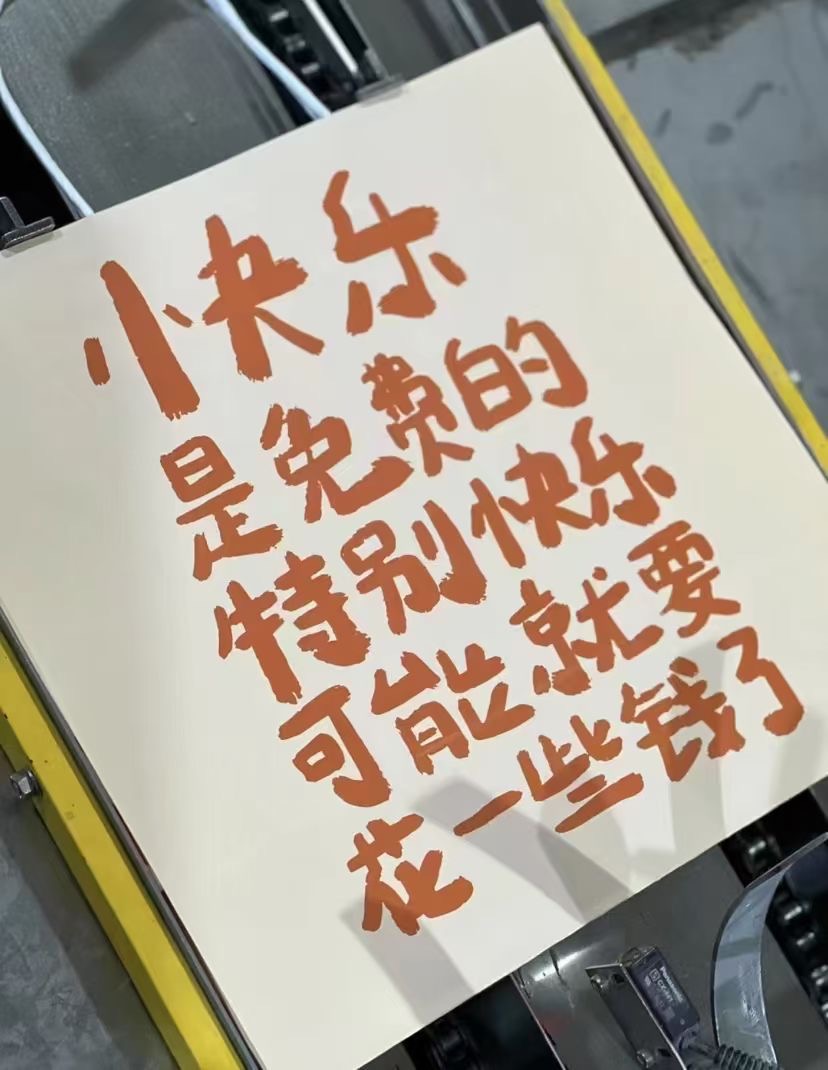 小快乐
是免费的
特别快乐
可能就要
花一些钱了
Panasonic